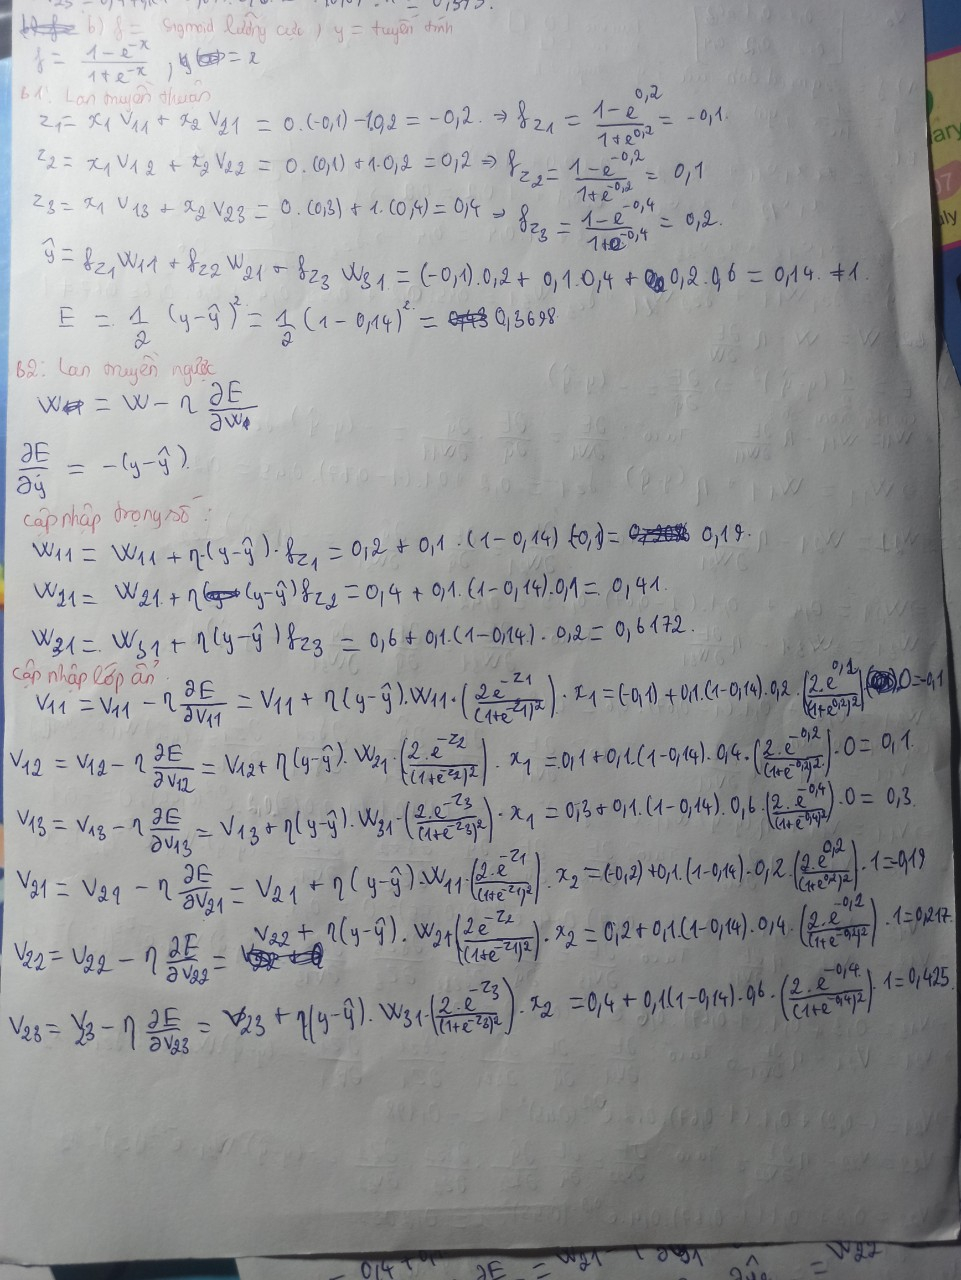 b) f = sigmoid lưỡng cực, y = tuyến tính
f = (1-e^-x)/(1+e^-x), y = x
B1: Lan truyền thuận
z1 = x1 V11 + x2 V21 = 0.(-0,1) -1.0,2 = -0,2. ⇒ fz1 = (1-e^0,2)/(1+e^0,2) = -0,1.
z2 = x1 V12 + x2 V22 = 0.(0,1) + 1.0,2 = 0,2 ⇒ fz2 = (1-e^-0,2)/(1+e^-0,2) = 0,1
z3 = x1 V13 + x2 V23 = 0.(0,3) + 1.(0,4) = 0,4 ⇒ fz3 = (1-e^-0,4)/(1+e^-0,4) = 0,2.
ŷ = fz1 W11 + fz2 W21 + fz3 W31 = (-0,1).0,2 + 0,1.0,4 + 0,2.0,6 = 0,14. ≠ 1.
E = 1/2 (y-ŷ)^2 = 1/2 (1-0,14)^2 = 0,3698
B2: Lan truyền ngược
W = W - η ∂E/∂W
∂E/∂ŷ = -(y-ŷ).
cập nhập trọng số:
W11 = W11 + η.(y-ŷ).fz1 = 0,2 + 0,1.(1-0,14)(-0,1) = 0,19.
W21 = W21 + η(y-ŷ)fz2 = 0,4 + 0,1.(1-0,14).0,1 = 0,41.
W31 = W31 + η(y-ŷ)fz3 = 0,6 + 0,1.(1-0,14).0,2 = 0,6172.
cập nhập lớp ẩn.
V11 = V11 - η ∂E/∂V11 = V11 + η(y-ŷ).W11.(2e^-z1/(1+e^-z1)^2).x1 = (-0,1) + 0,1.(1-0,14).0,2.(2.e^0,2/(1+e^0,2)^2).0 = -0,1
V12 = V12 - η ∂E/∂V12 = V12 + η(y-ŷ).W21.(2.e^-z2/(1+e^-z2)^2).x1 = 0,1 + 0,1.(1-0,14).0,4.(2.e^-0,2/(1+e^-0,2)^2).0 = 0,1.
V13 = V13 - η ∂E/∂V13 = V13 + η(y-ŷ).W31.(2.e^-z3/(1+e^-z3)^2).x1 = 0,3 + 0,1.(1-0,14).0,6.(2.e^-0,4/(1+e^-0,4)^2).0 = 0,3.
V21 = V21 - η ∂E/∂V21 = V21 + η(y-ŷ).W11.(2.e^-z1/(1+e^-z1)^2).x2 = (-0,2) + 0,1.(1-0,14).0,2.(2.e^0,2/(1+e^0,2)^2).1 = -0,19
V22 = V22 - η ∂E/∂V22 = V22 + η(y-ŷ).W21(2e^-z2/(1+e^-z1)^2).x2 = 0,2 + 0,1.(1-0,14).0,4.(2.e^-0,2/(1+e^-0,2)^2).1 = 0,217.
V23 = V3 - η ∂E/∂V23 = V23 + η(y-ŷ).W31.(2.e^-z3/(1+e^-z3)^2).x2 = 0,4 + 0,1(1-0,14).0,6.(2.e^-0,4/(1+e^-0,4)^2).1 = 0,425.